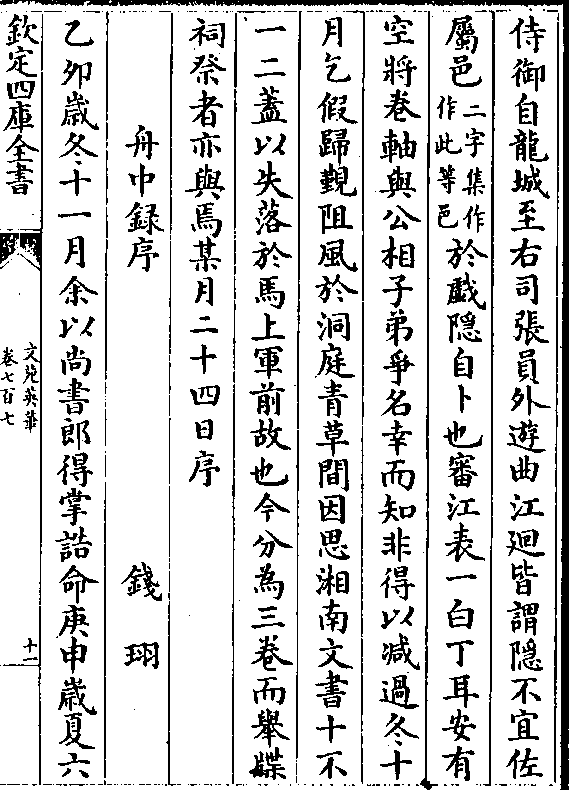 侍御自龍城至右司張員外遊曲江廻皆謂隱不宜佐
屬邑二字集作作此等邑於戲隱自卜也審江表一白丁耳安有
空將卷軸與公相子弟爭名幸而知非得以減過冬十
月乞假歸覲阻風於洞庭青草間因思湘南文書十不
一二蓋以失落於馬上軍前故也今分為三卷而舉牒
祠祭者亦與焉某月二十四日序
舟中録序 錢珝
乙夘歳冬十一月余以尚書郎得掌誥命庚申歳夏六
欽定四庫全書
文苑英華
卷七百七
十一